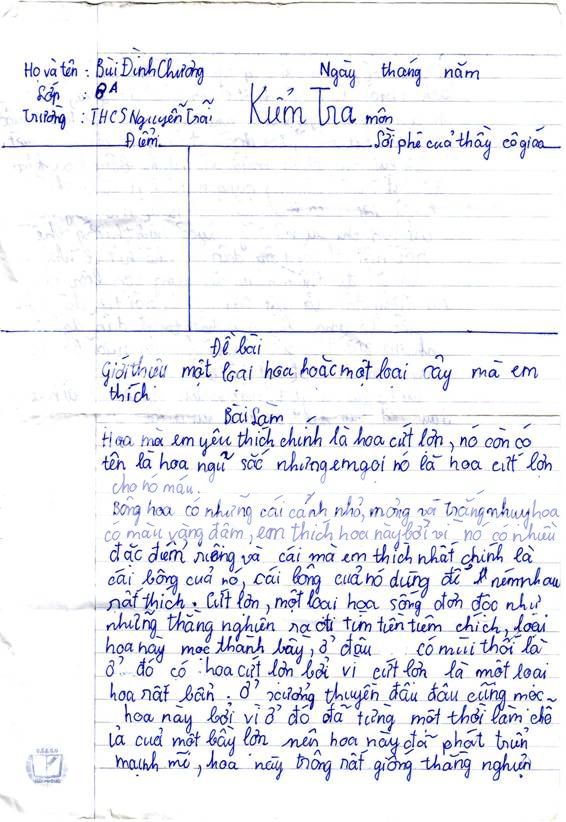 Họ và tên : Bùi Đình Chương
Ngày tháng năm
Lớp : 8A
Trường : THCS Nguyễn Trãi
Kiểm Tra môn
Điểm
Lời phê của thầy cô giáo
Đề bài
Giới thiệu một loại hoa hoặc một loại cây mà em
thích
Bài Làm
Hoa mà em yêu thích chính là hoa cứt lợn, nó còn có
tên là hoa ngũ sắc nhưng em gọi nó là hoa cứt lợn
cho nó máu.
Bông hoa có những cái cánh nhỏ, mỏng và trắng nhuỵ hoa
có màu vàng đâm, em thích hoa này bởi vì nó có nhiều
đặc điểm riêng và cái mà em thích nhất chính là
cái bông của nó, cái bông của nó dùng để ném nhau
rất thích. Cứt lợn, một loại hoa sống đơn độc như
những thằng nghiện ra đi tìm tiên tiêm chích, loại
hoa này mọc thành bầy, ở đâu có mùi thối là
ở đó có hoa cứt lợn bởi vì cứt lợn là một loại
hoa rất bẩn. ở xưởng thuyền đâu đâu cũng mọc
hoa này bởi vì ở đó đã từng một thời làm chỗ
ỉa của một bầy lợn nên hoa này đã phát triển
mạnh mẽ, hoa này trông rất giống thằng nghiện